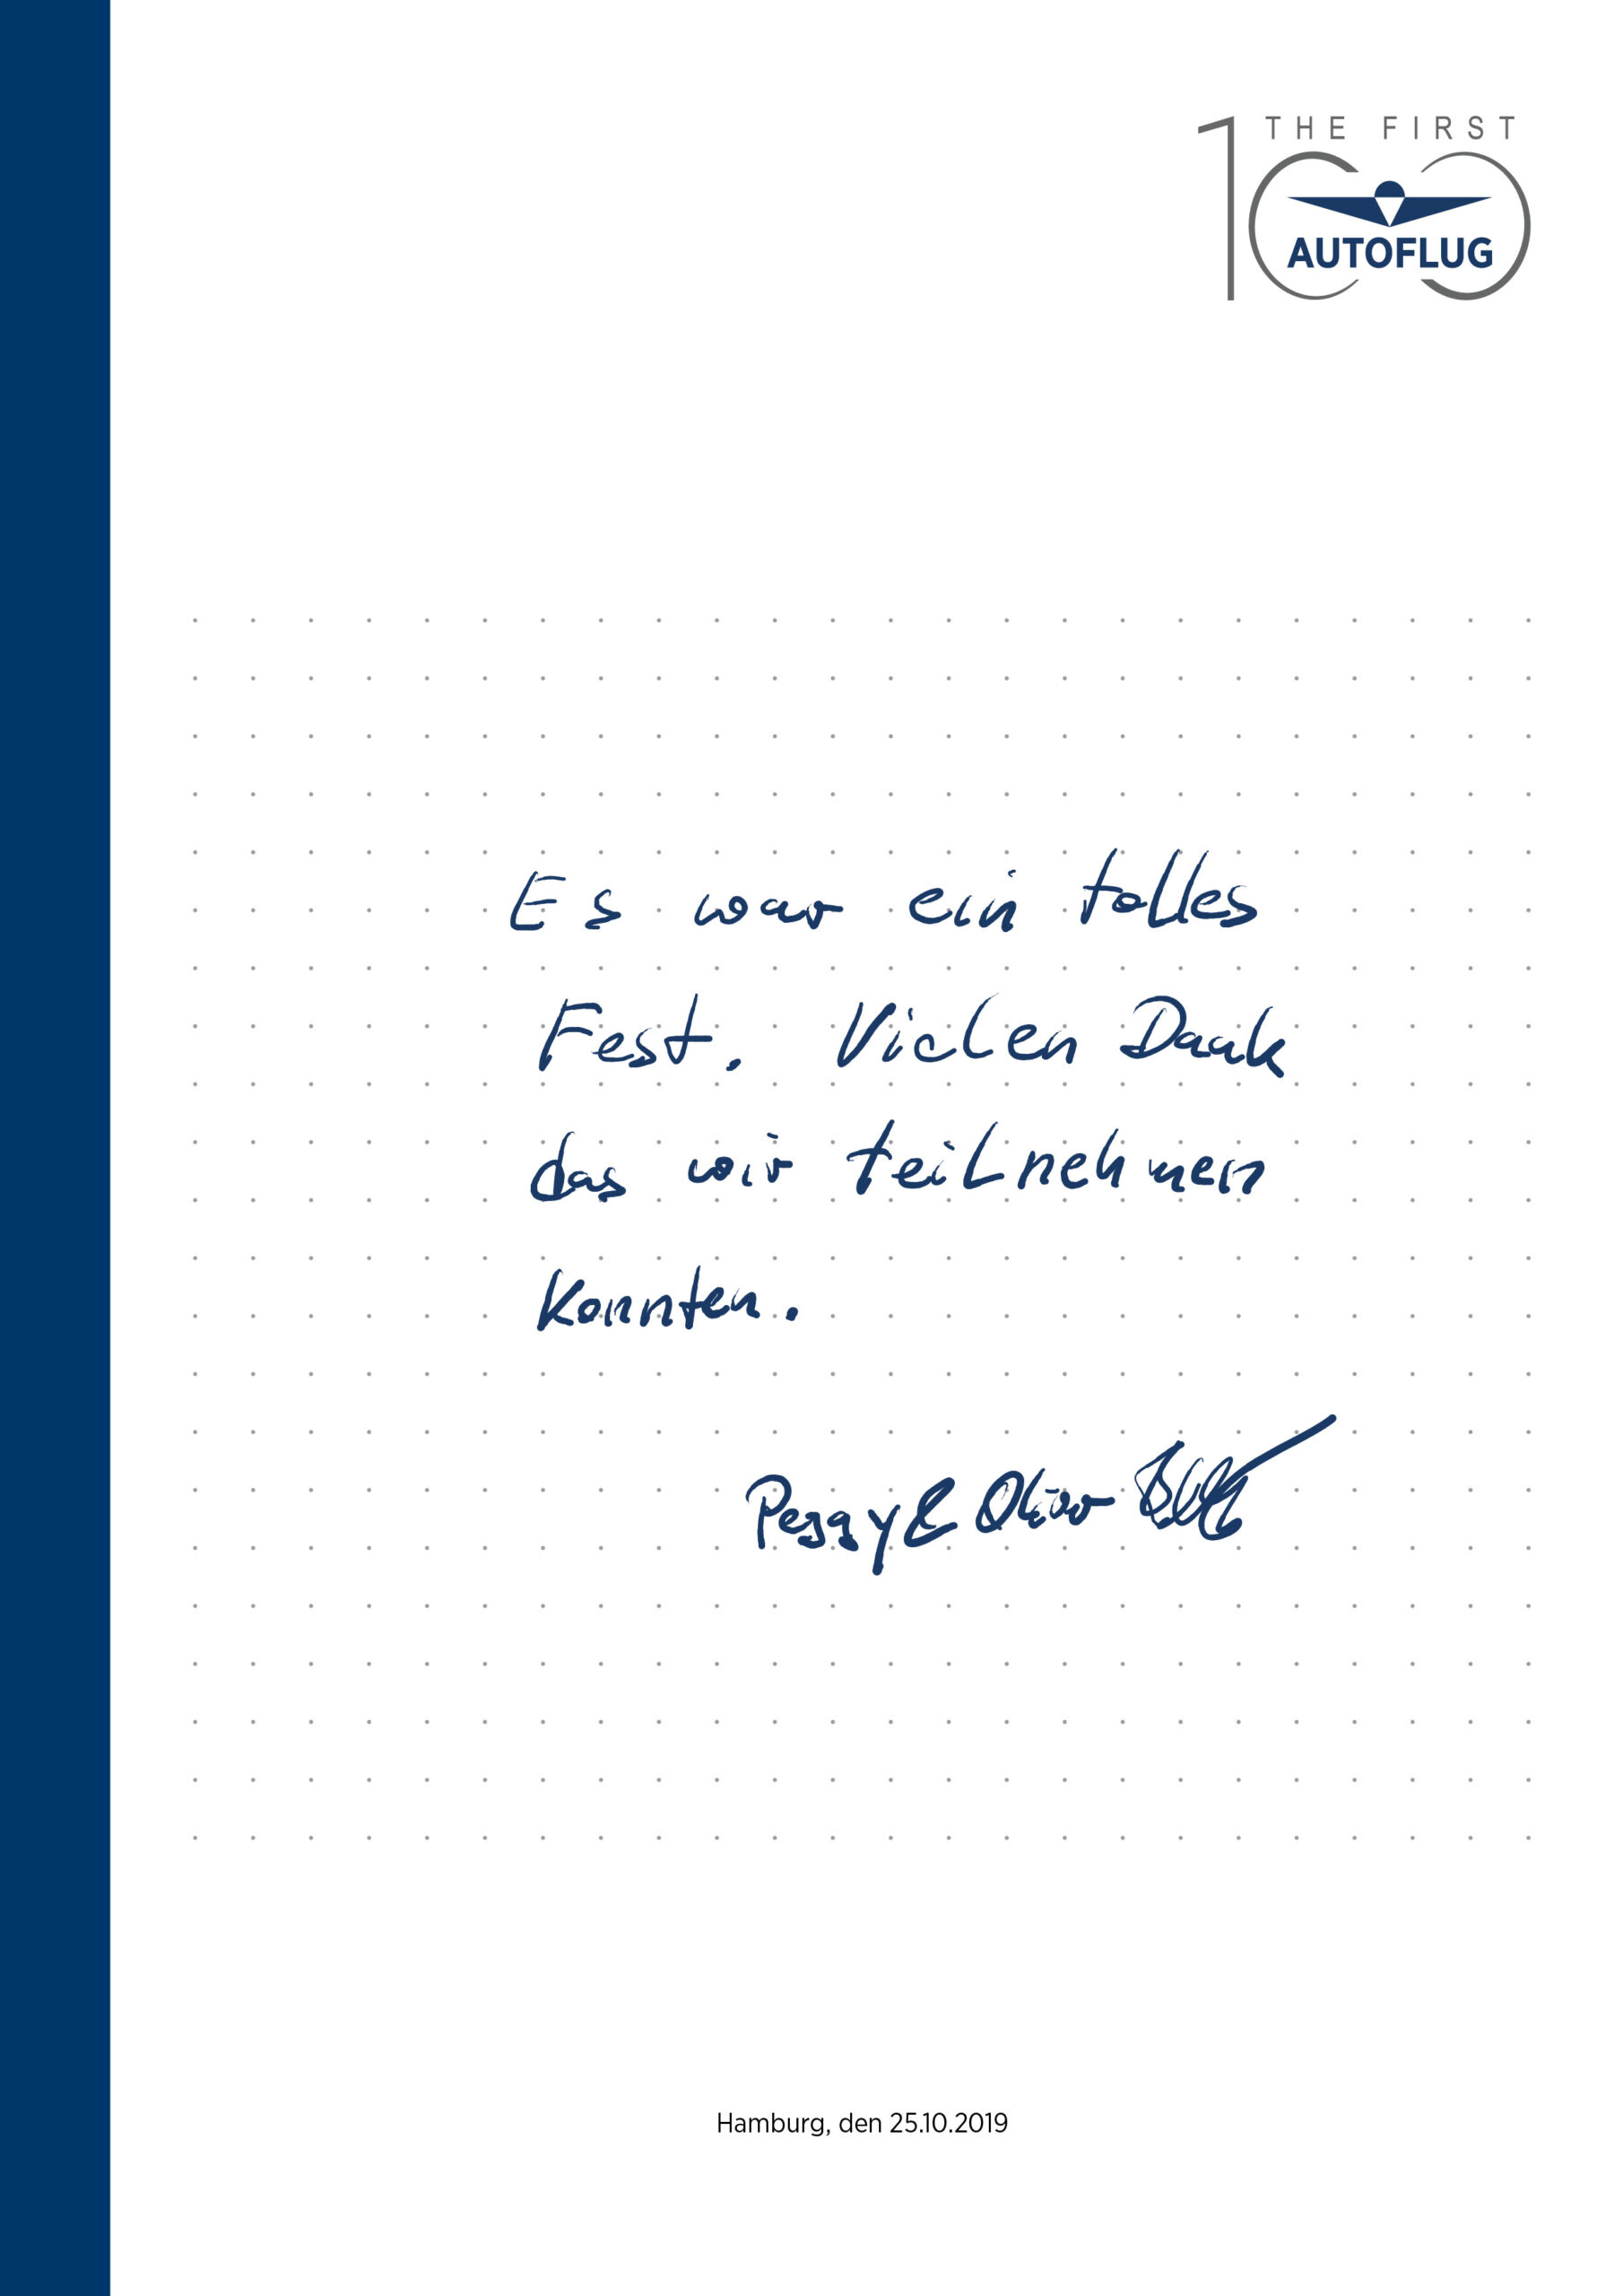 THE FIRST
100
AUTOFLUG
Es war ein tolles
Fest. Vielen Dank
das wir teilnehmen
konnten.
Peggy & Oliver
Hamburg, den 25.10.2019